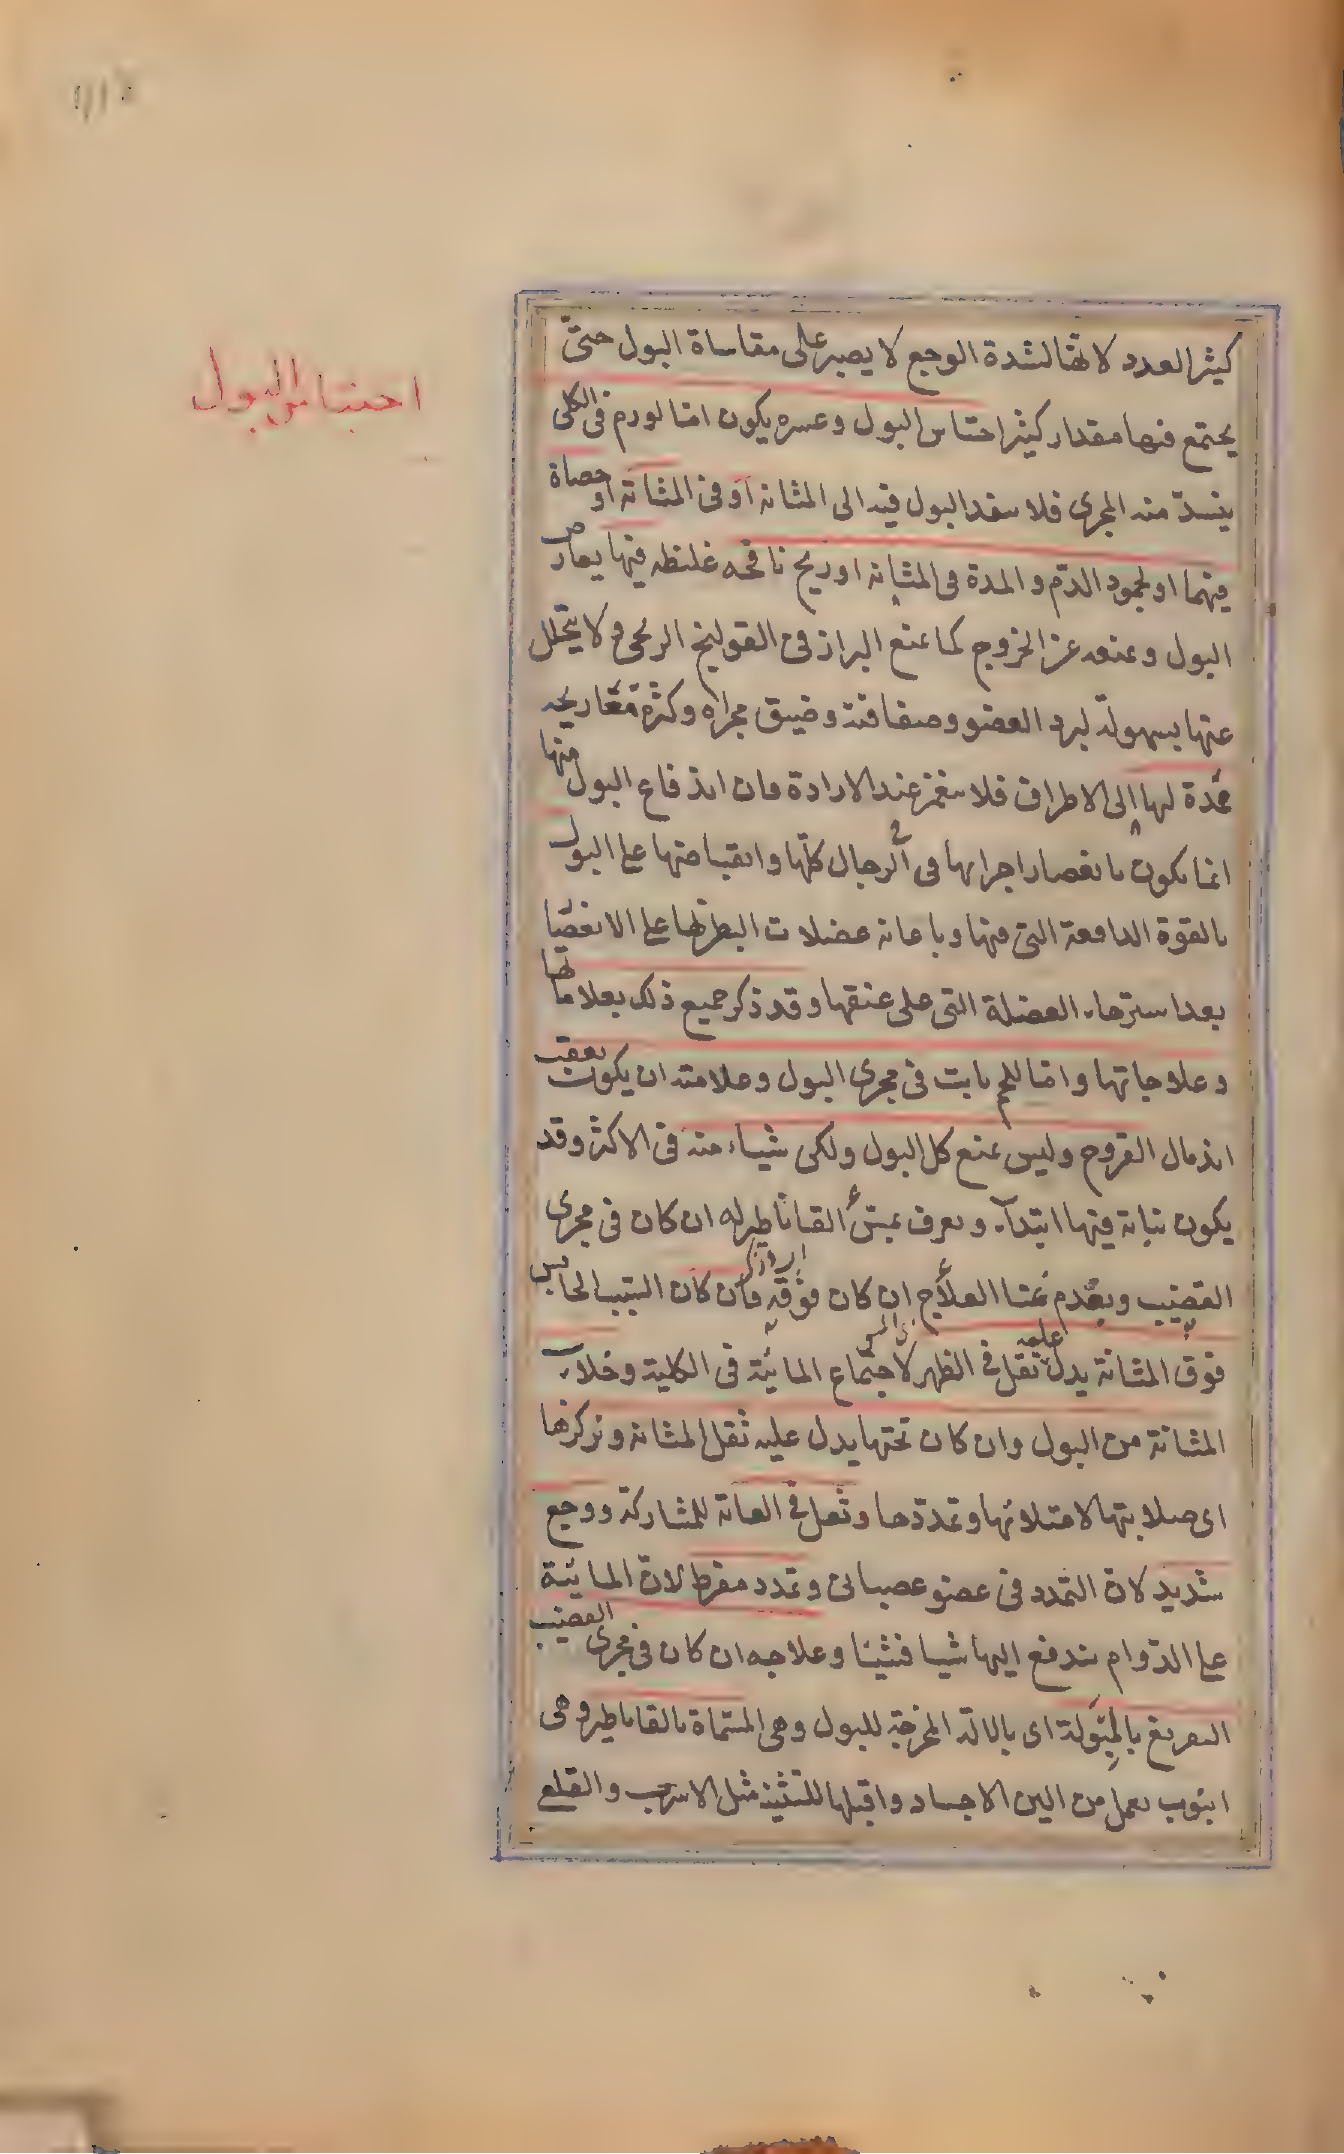 احتباس البول
كثير العدد لانها لشدة الوجع لا يصبر على مقاساة البول حتى
يجتمع فيها مقدار كثير احتباس البول وعسره يكون اما لورم فى الكلى
ينسد منه المجرى فلا ينفد البول فيه الى المثانة او فى المثانة او حصاة
فيهما او لجمود الدم والمدة فى المثانة او ريح نافخه غليظه فيها يعارض
البول ويمنعه عن الخروج كما يمنع البراز فى القولنج الريحى ولا يتحلل
عنها بسهولة لبرد العضو وصفاقته وضيق مجراه وكثرة
ممددة لها الى الاطراف فلا ينغمز عند الارادة فان اندفاع البول منها
انما يكون بانعصار اجزائها فى كلها وانقباضها على البول
بالقوة الدافعة التى فيها وباعانة عضلات البطن لها على الانعصار
بعد استرخاء العضلة التى على عنقها وقد ذكر جميع ذلك بعلاماتها
وعلاجاتها واما للحم نابت فى مجرى البول وعلامته ان يكون بعقب
اندمال القروح وليس يمنع كل البول ولكن شيئاء منه فى الاكثر وقد
يكون نباته فيها ابتدآء ويعرف بمس القاثاطير له ان كان فى مجرى
القضيب وبعدم غنا العلاج ان كان فوقه فان كان السبب الحابس
فوق المثانة يدل عليه ثقل فى الظهر لاجتماع المائية فى الكلية وخلاء
المثانة من البول وان كان تحتها يدل عليه ثقل المثانة وتركزها
اى صلابتها لامتلائها وتمددها وثقل فى العانة للمشاركة ووجع
شديد لان التمدد فى عضو عصبانى وتمدد مفرط لان المائية
على الدوام يندفع اليها شيا فشيئا وعلاجه ان كان فى مجرى القضيب
التفريغ بالمبولة اى بالالة المخرجة للبول وهى المسماة بالقاثاطير وهى
انبوب يعمل من الين الاجساد واقبلها للتثنى مثل الاسرب والقلعى